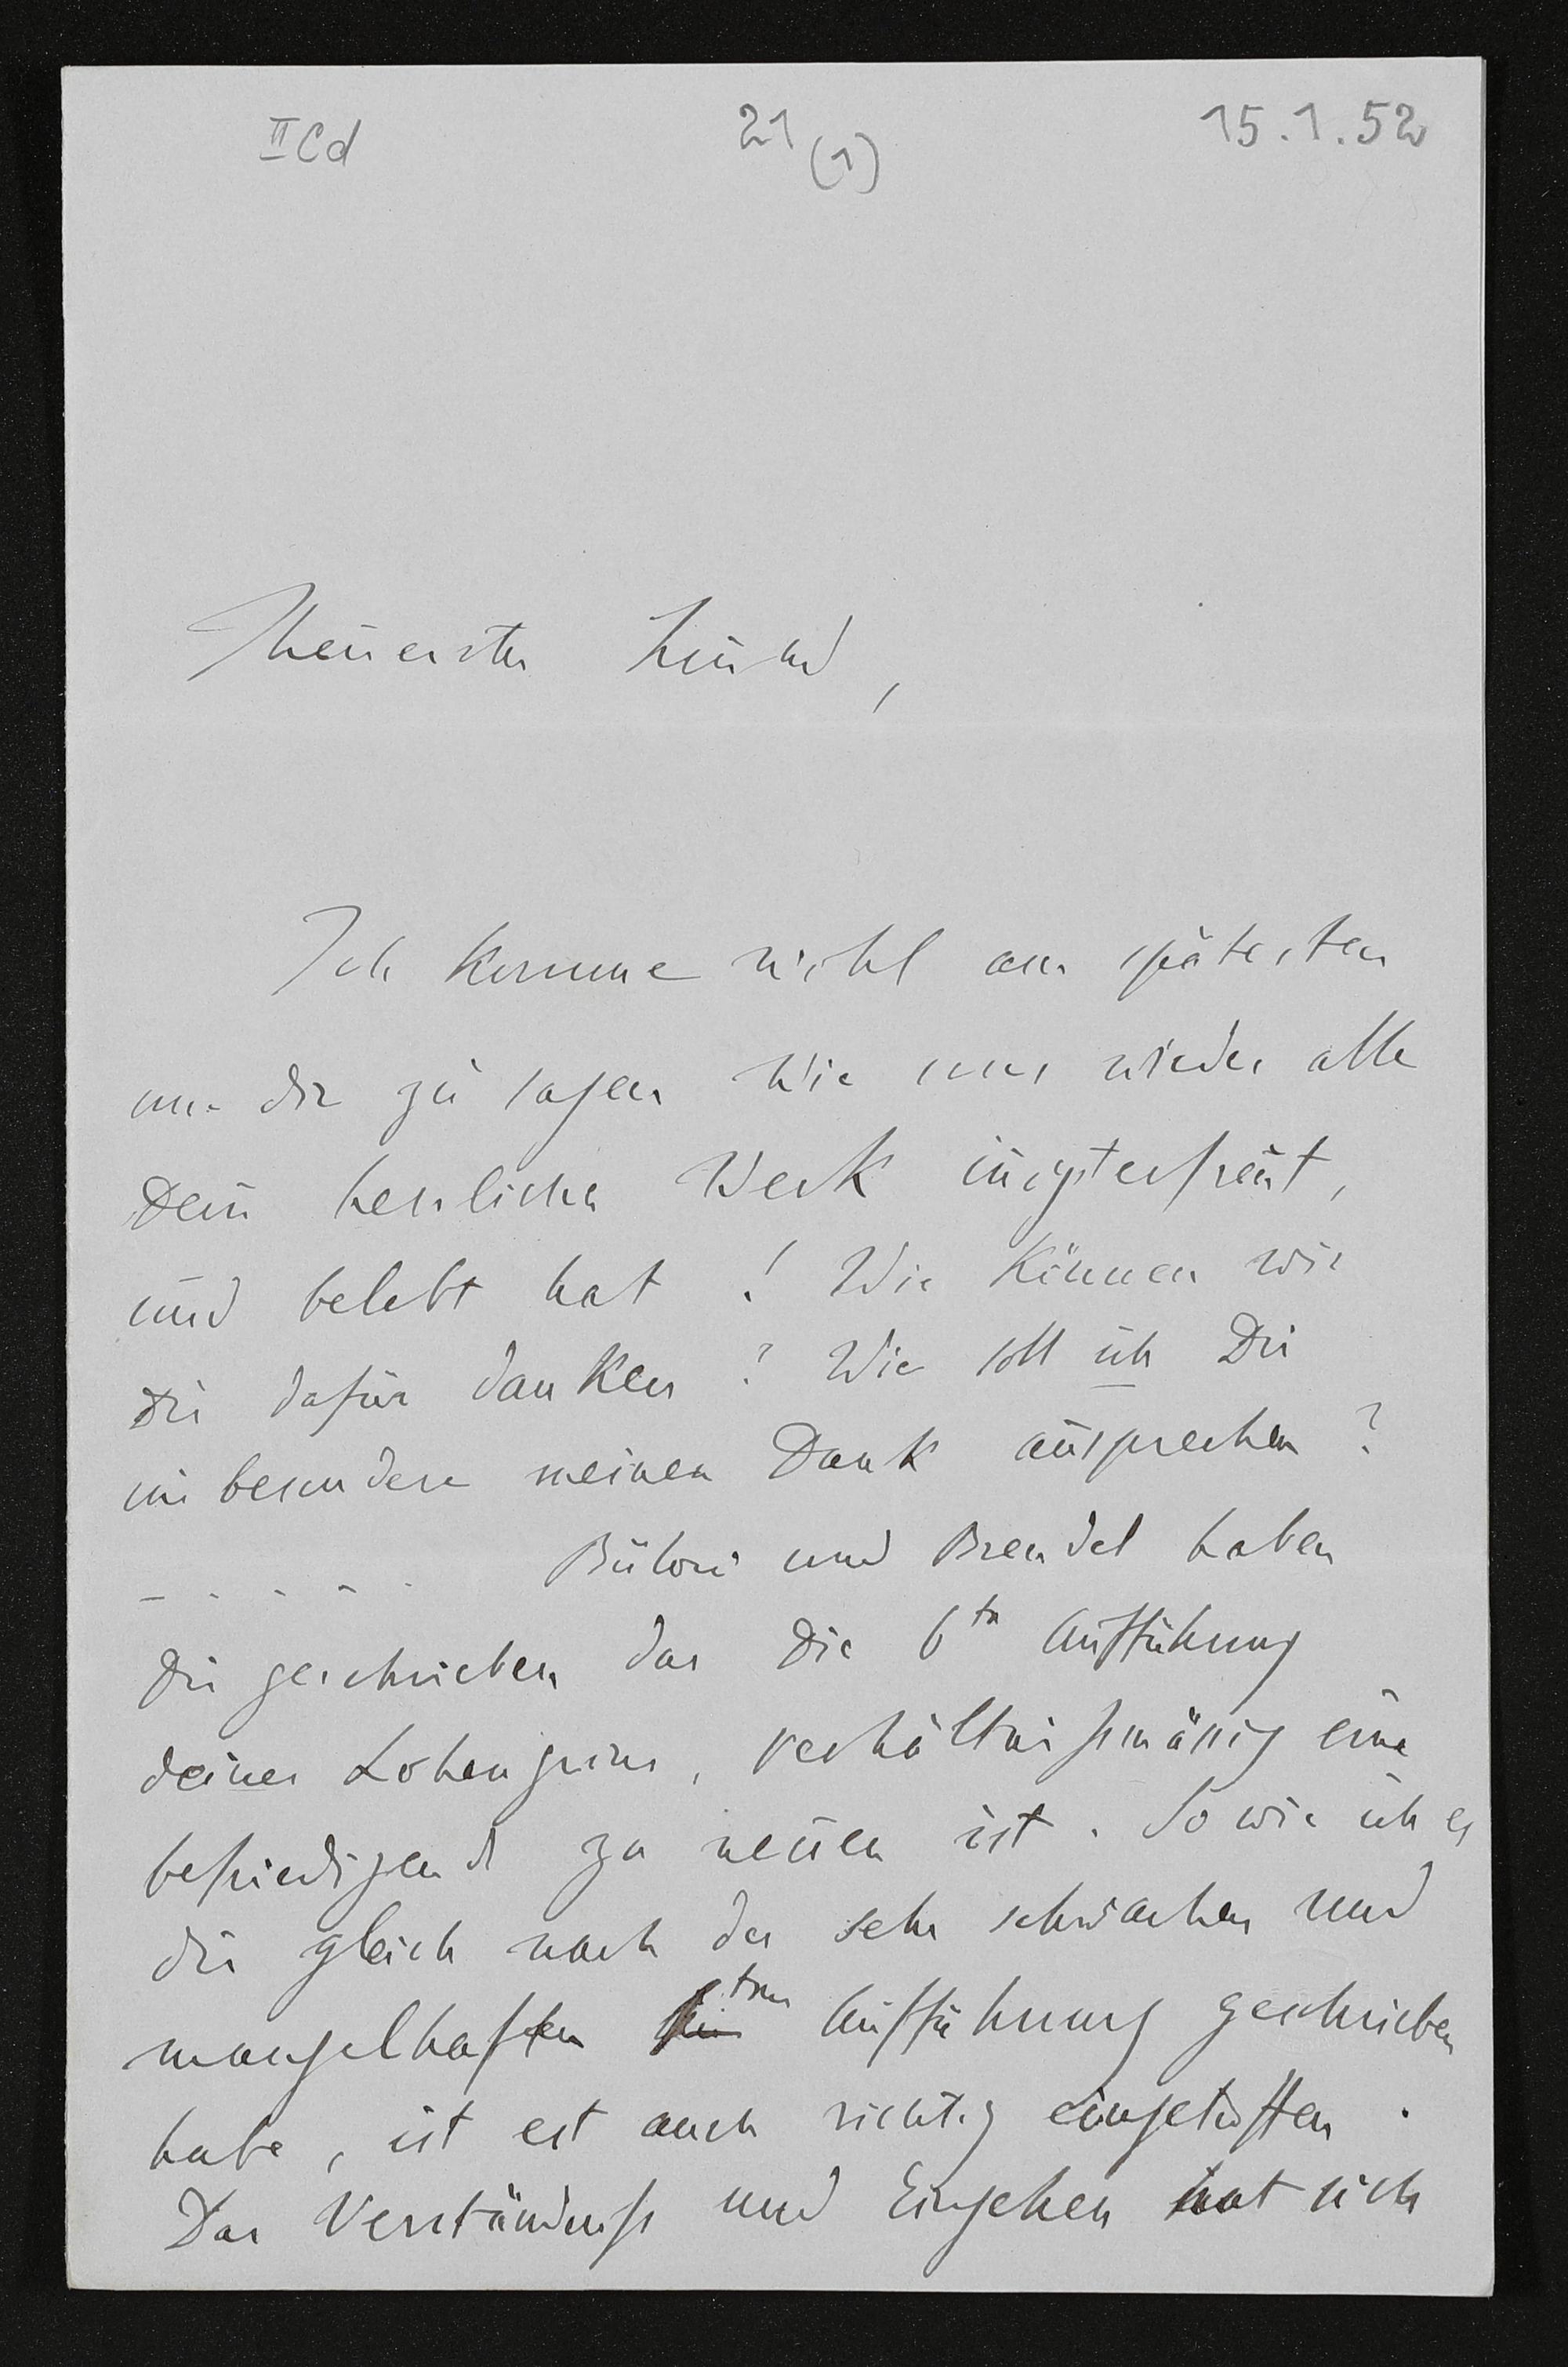 II Cd 21 (1) 15.1.52
Theuerster Freund,
Ich komme nicht am spätesten
um dir zu sagen wie uns wieder alle
Dein herrliches Werk innigst erfreut,
und belebt hat! Wie können wir
Dir dafür danken? Wie soll ich Dir
ins besondere meinen Dank aussprechen?
– - - - - Bülow und Brendel haben
Dir geschrieben das die 6te Aufführung
deines Lohengrins, verhältnissmässig eine
befriedigend zu nennen ist. So wie ich es
dir gleich nach der sehr schwachen und
mangelhaften ten Aufführung geschrieben
habe, ist est auch richtig eingetroffen.
Das Verständniss und Eingehen hat sich